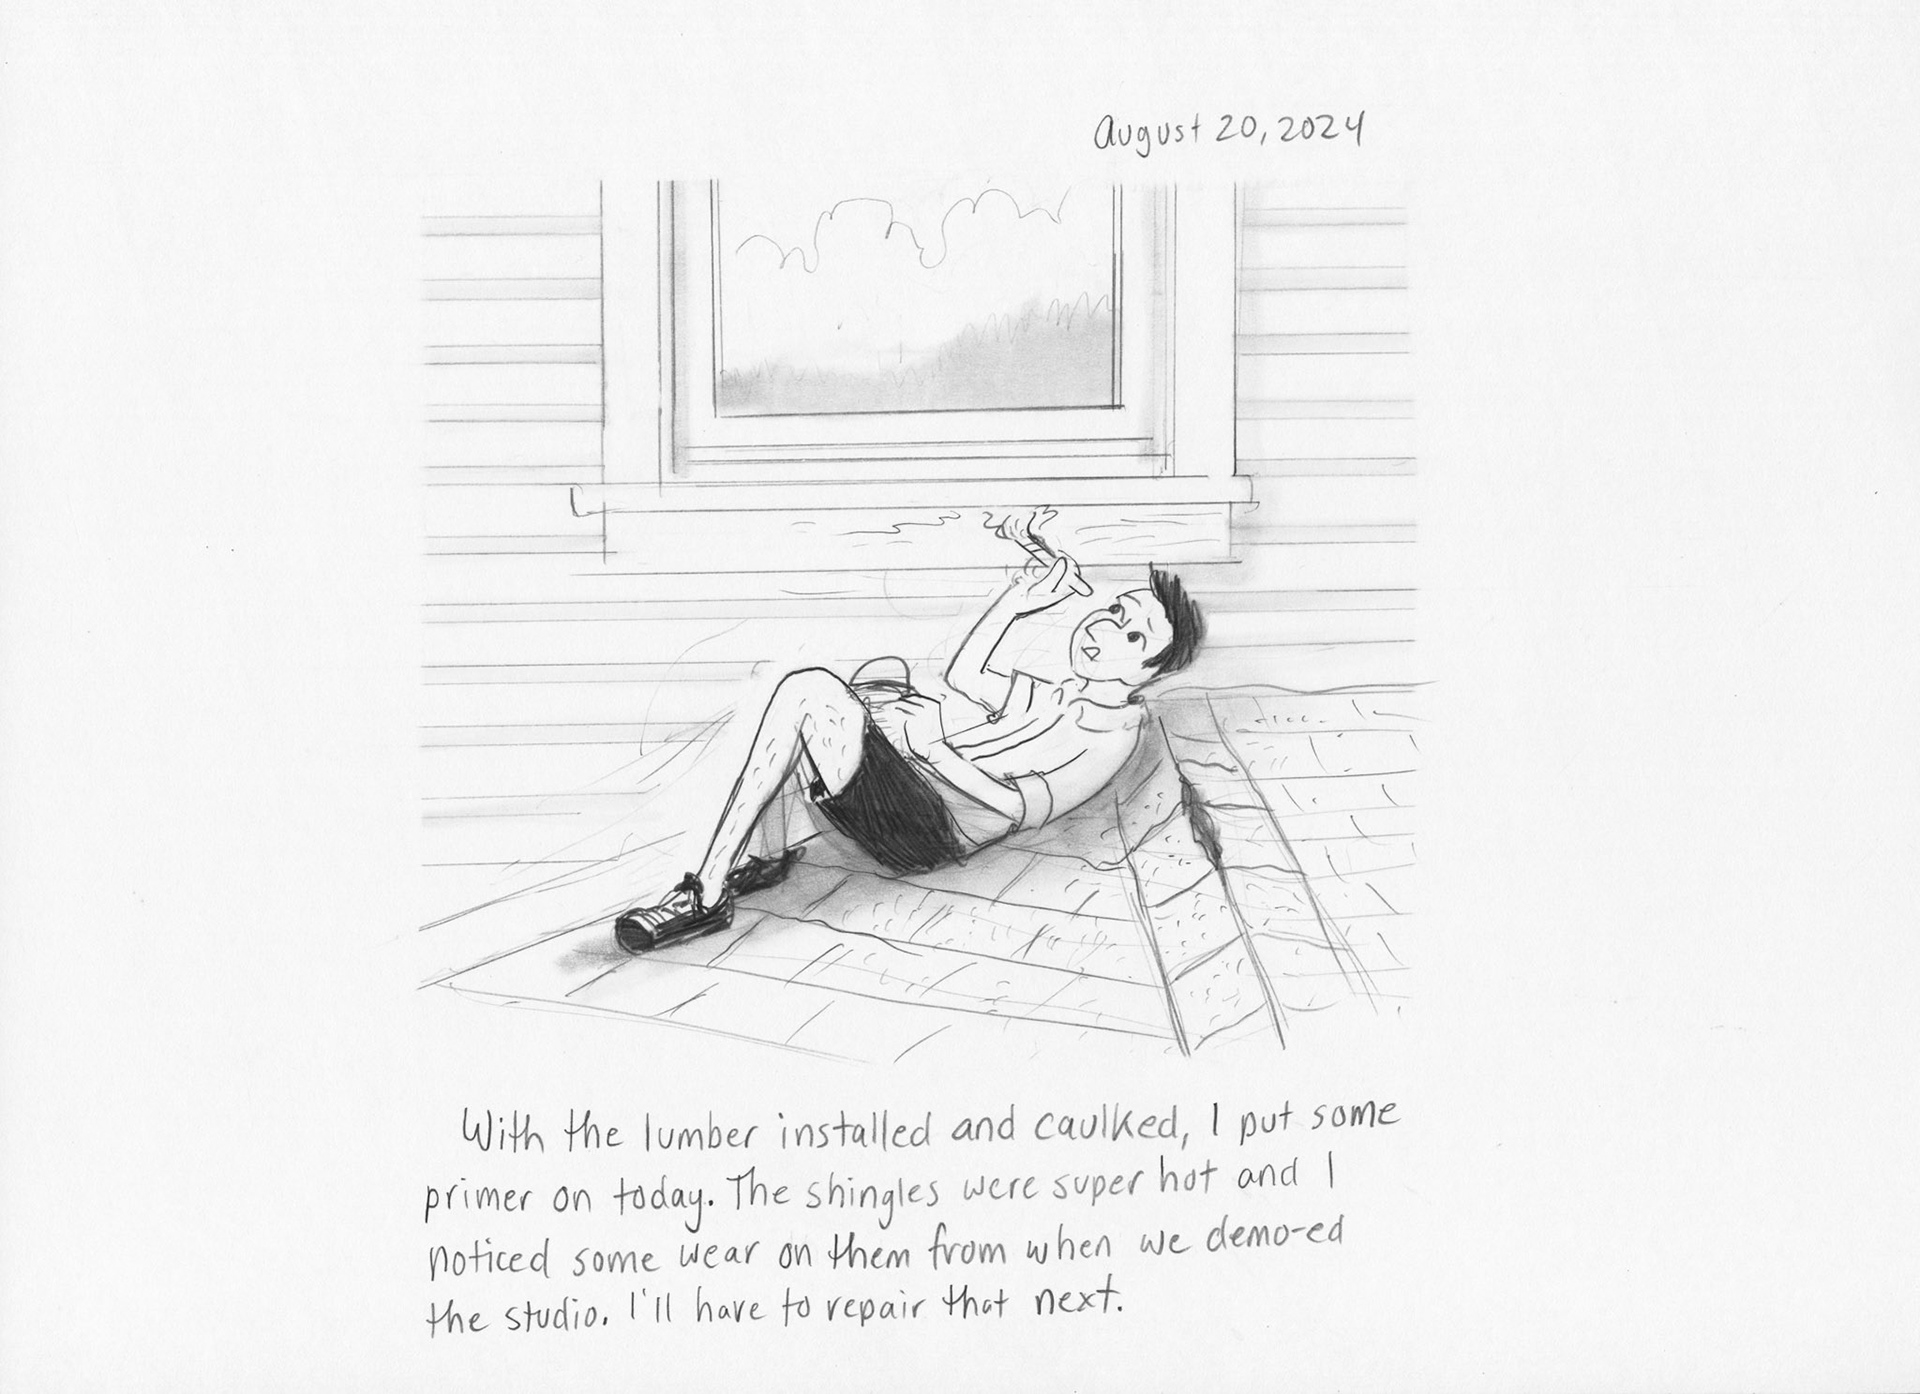 August 20, 2024
With the lumber installed and caulked, I put some
primer on today. The shingles were super hot and I
noticed some wear on them from when we demo-ed
the studio. I'll have to repair that next.